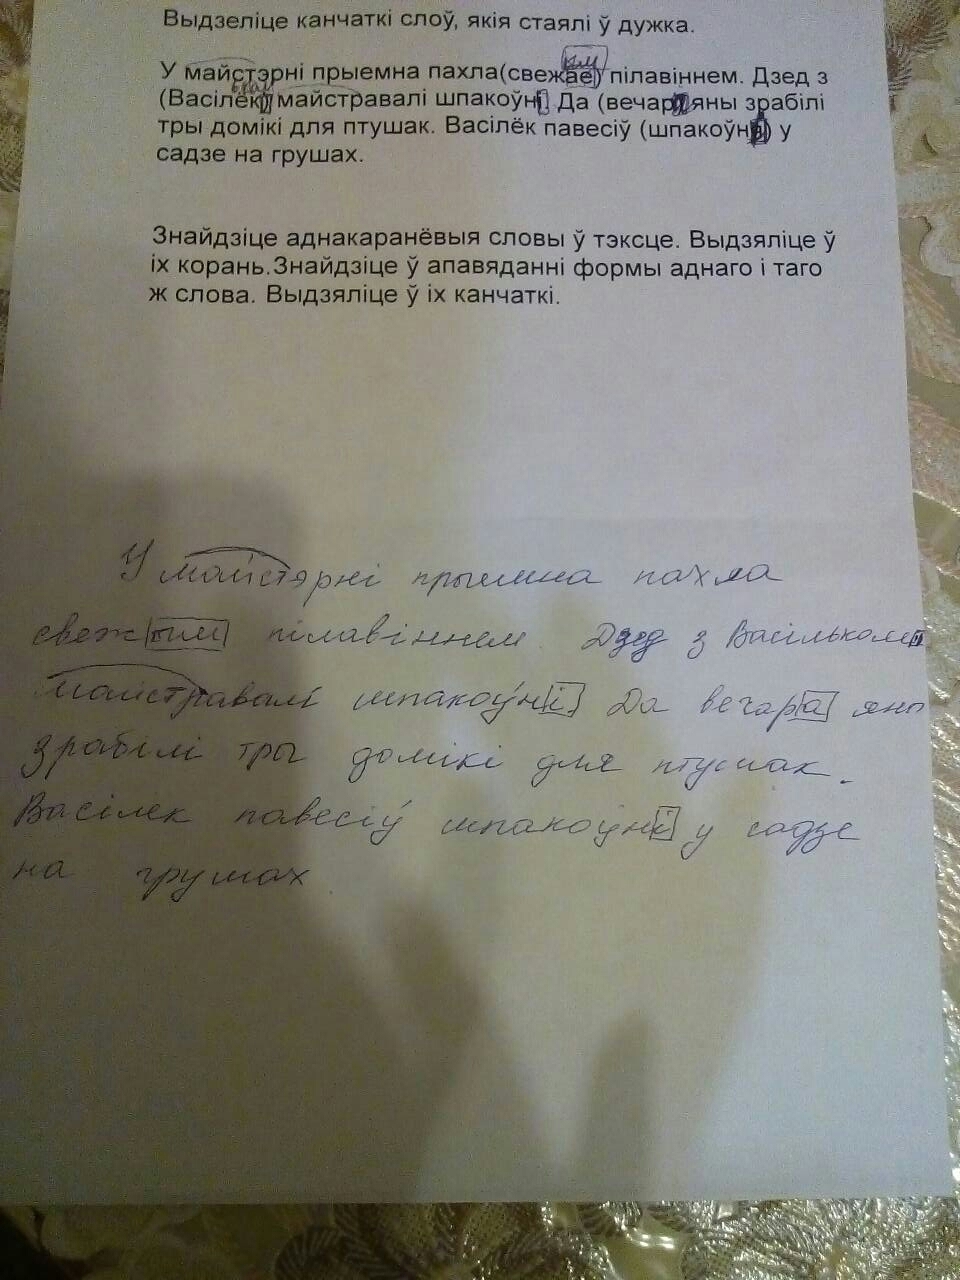 Выдзеліце канчаткі слоў, якія стаялі ў дужка.
У майстэрні прыемна пахла(свежае) пілавіннем. Дзед з
(Васілёк) майстравалі шпакоўні. Да (вечар) яны зрабілі
тры домікі для птушак. Васілёк павесіў (шпакоўн) у
садзе на грушах.
Знайдзіце аднакаранёвыя словы ў тэксце. Выдзяліце ў
іх корань.Знайдзіце ў апавяданні формы аднаго і таго
ж слова. Выдзяліце ў іх канчаткі.
У майстэрні прыемна пахла
свежым пілавіннем. Дзед з Васільком
майстравалі шпакоўні. Да вечара яны
зрабілі тры домікі для птушак.
Васілек павесіў шпакоўні у садзе
на грушах